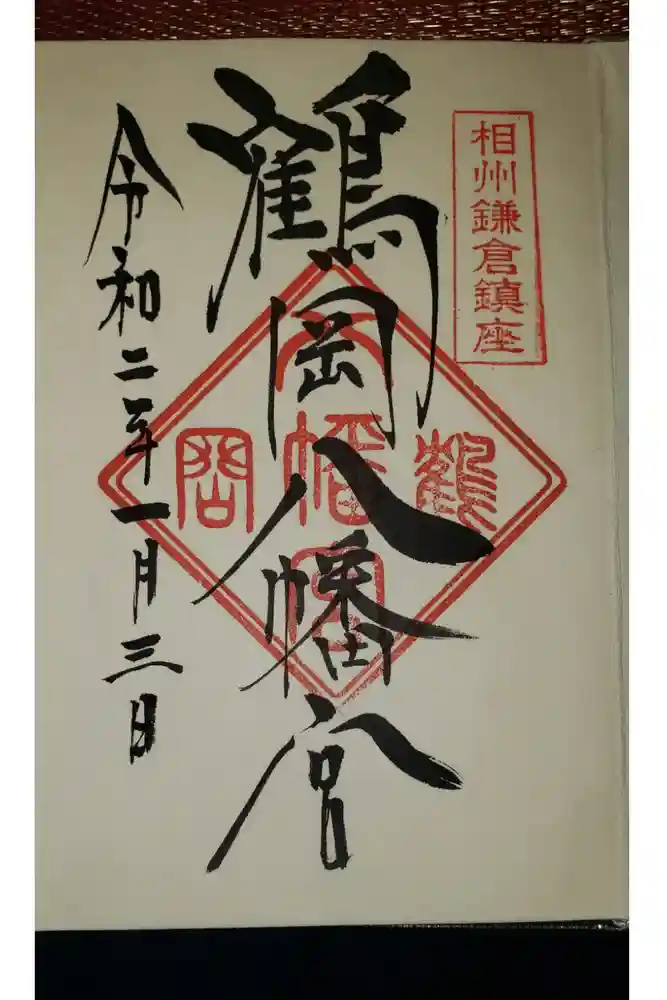 相州鎌倉鎮座
鶴岡八幡宮
鶴
八幡宮
岡
令和二年一月三日